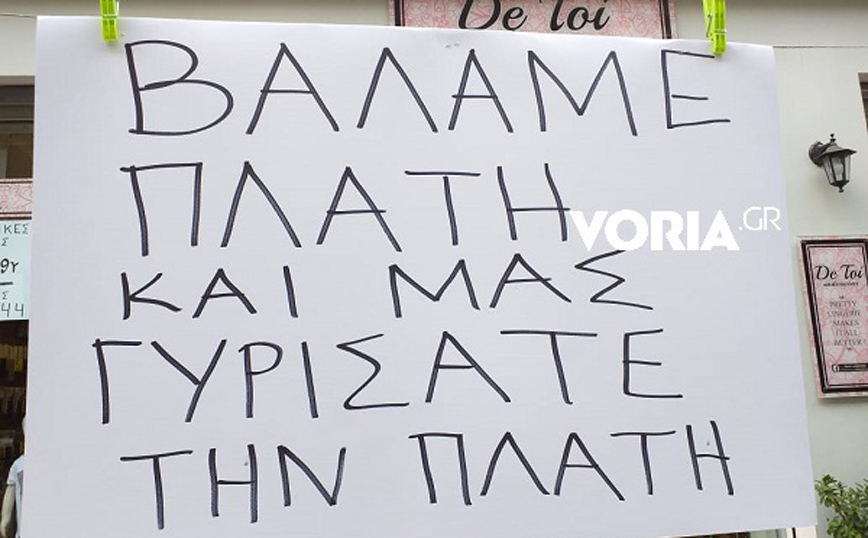 De Toi
ΒΑΛΑΜΕ
ΠΛΑΤΗ
VORIA.GR
ΚΑΙ ΜΑΣ
ΓΥΡΙΣΑΤΕ
ΤΗΝ ΠΛΑΤΗ
De Toi
PRETTY
LINGERIE
MAKES
IT ALL
BETTER!
ΚΕΣ
44